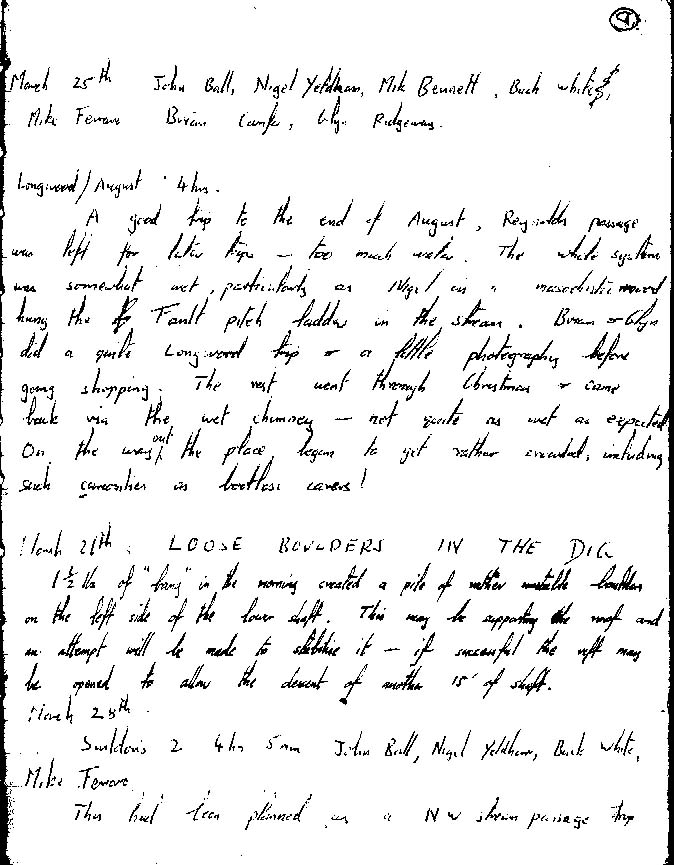 9.
March 25th John Ball, Nigel Yeldham, Mike Bennett, Buck White,
Mike Ferraro Brian Glyn Ridgeway.
Longwood/August 4 hrs.
A good trip to the end of August, Reynolds passage
was left for later trips – too much water. The whole system
was somewhat wet, particularly as Nigel in a masochistic mood
hung the Fault pitch ladder in the stream. Brian & Glyn
did a quite Longwood trip & a little photography before
going shopping. The rest went through Christmas & came
back via the wet chimney – not quite as wet as expected
On the way out the place began to get rather crowded, including
such curiosities as bootless cavers!
March 26th. LOOSE BOULDERS IN THE DIG
1½ lbs of "bang" in the morning created a pile of rather unstable boulders
on the left side of the lower shaft. This may be supporting the roof and
an attempt will be made to stabilise it – if successful the rift may
be opened to allow the descent of another 15' of shaft.
March 28th.
Swildon's 2 4 hrs 5 min John Ball, Nigel Yeldham, Buck White,
Mike Ferraro.
This had been planned as a NW stream passage trip